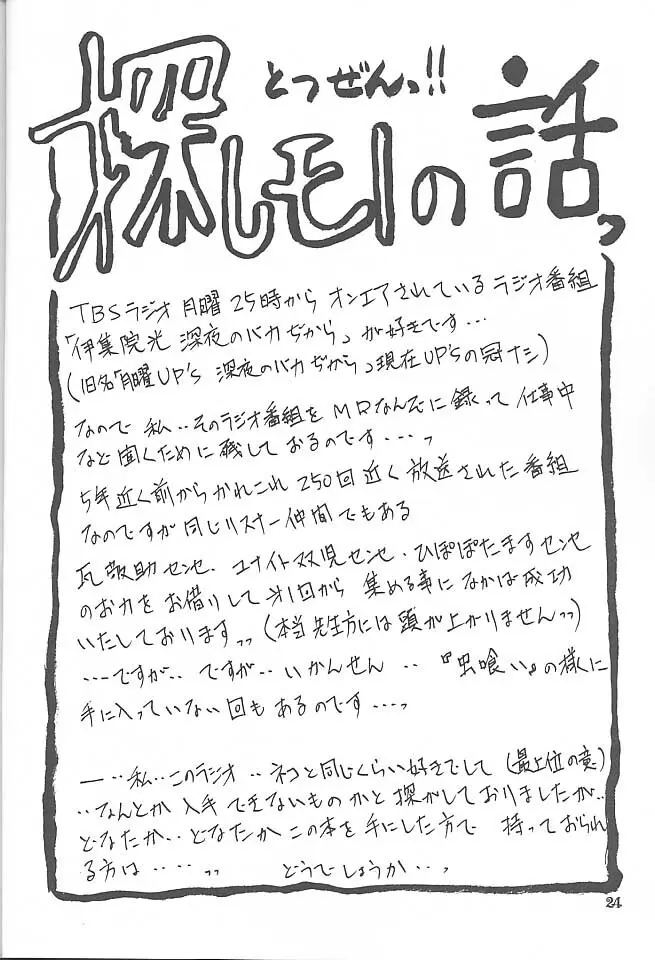 とつぜんっ!!
探しモノの話っ
TBSラジオ 月曜 25時から オンエアされている ラジオ番組
「伊集院光 深夜のバカぢから」が好きです…
(旧名「月曜UP's 深夜のバカぢから」現在UP'sの冠ナシ)
なので 私‥そのラジオ番組を MDなんぞに録って 仕事中
など聞くために残しておるのです‥‥っ
5年近く前からかれこれ 250回近く放送された番組
なのですが同じリスナー仲間でもある
瓦敬助センセ、ユナイト双児センセ・ひぽぽたますセンセ
のお力をお借りして 第1回から 集める事に なかば成功
いたしておりますっっ (本当先生方には頭が上がりませんっっ)
‥‥ですが‥ ですが‥ いかんせん ‥ 『虫喰い』の様に
手に入っていない回もあるのです‥‥っ
―‥私‥このラジオ‥ネコと同じくらい好きでして (最上位の意)
‥なんとか入手できないものかと探がしておりましたが‥
どなたか‥どなたかこの本を手にした方で 持っておられ
る方は‥‥っっ どうでしょうか‥っ
24